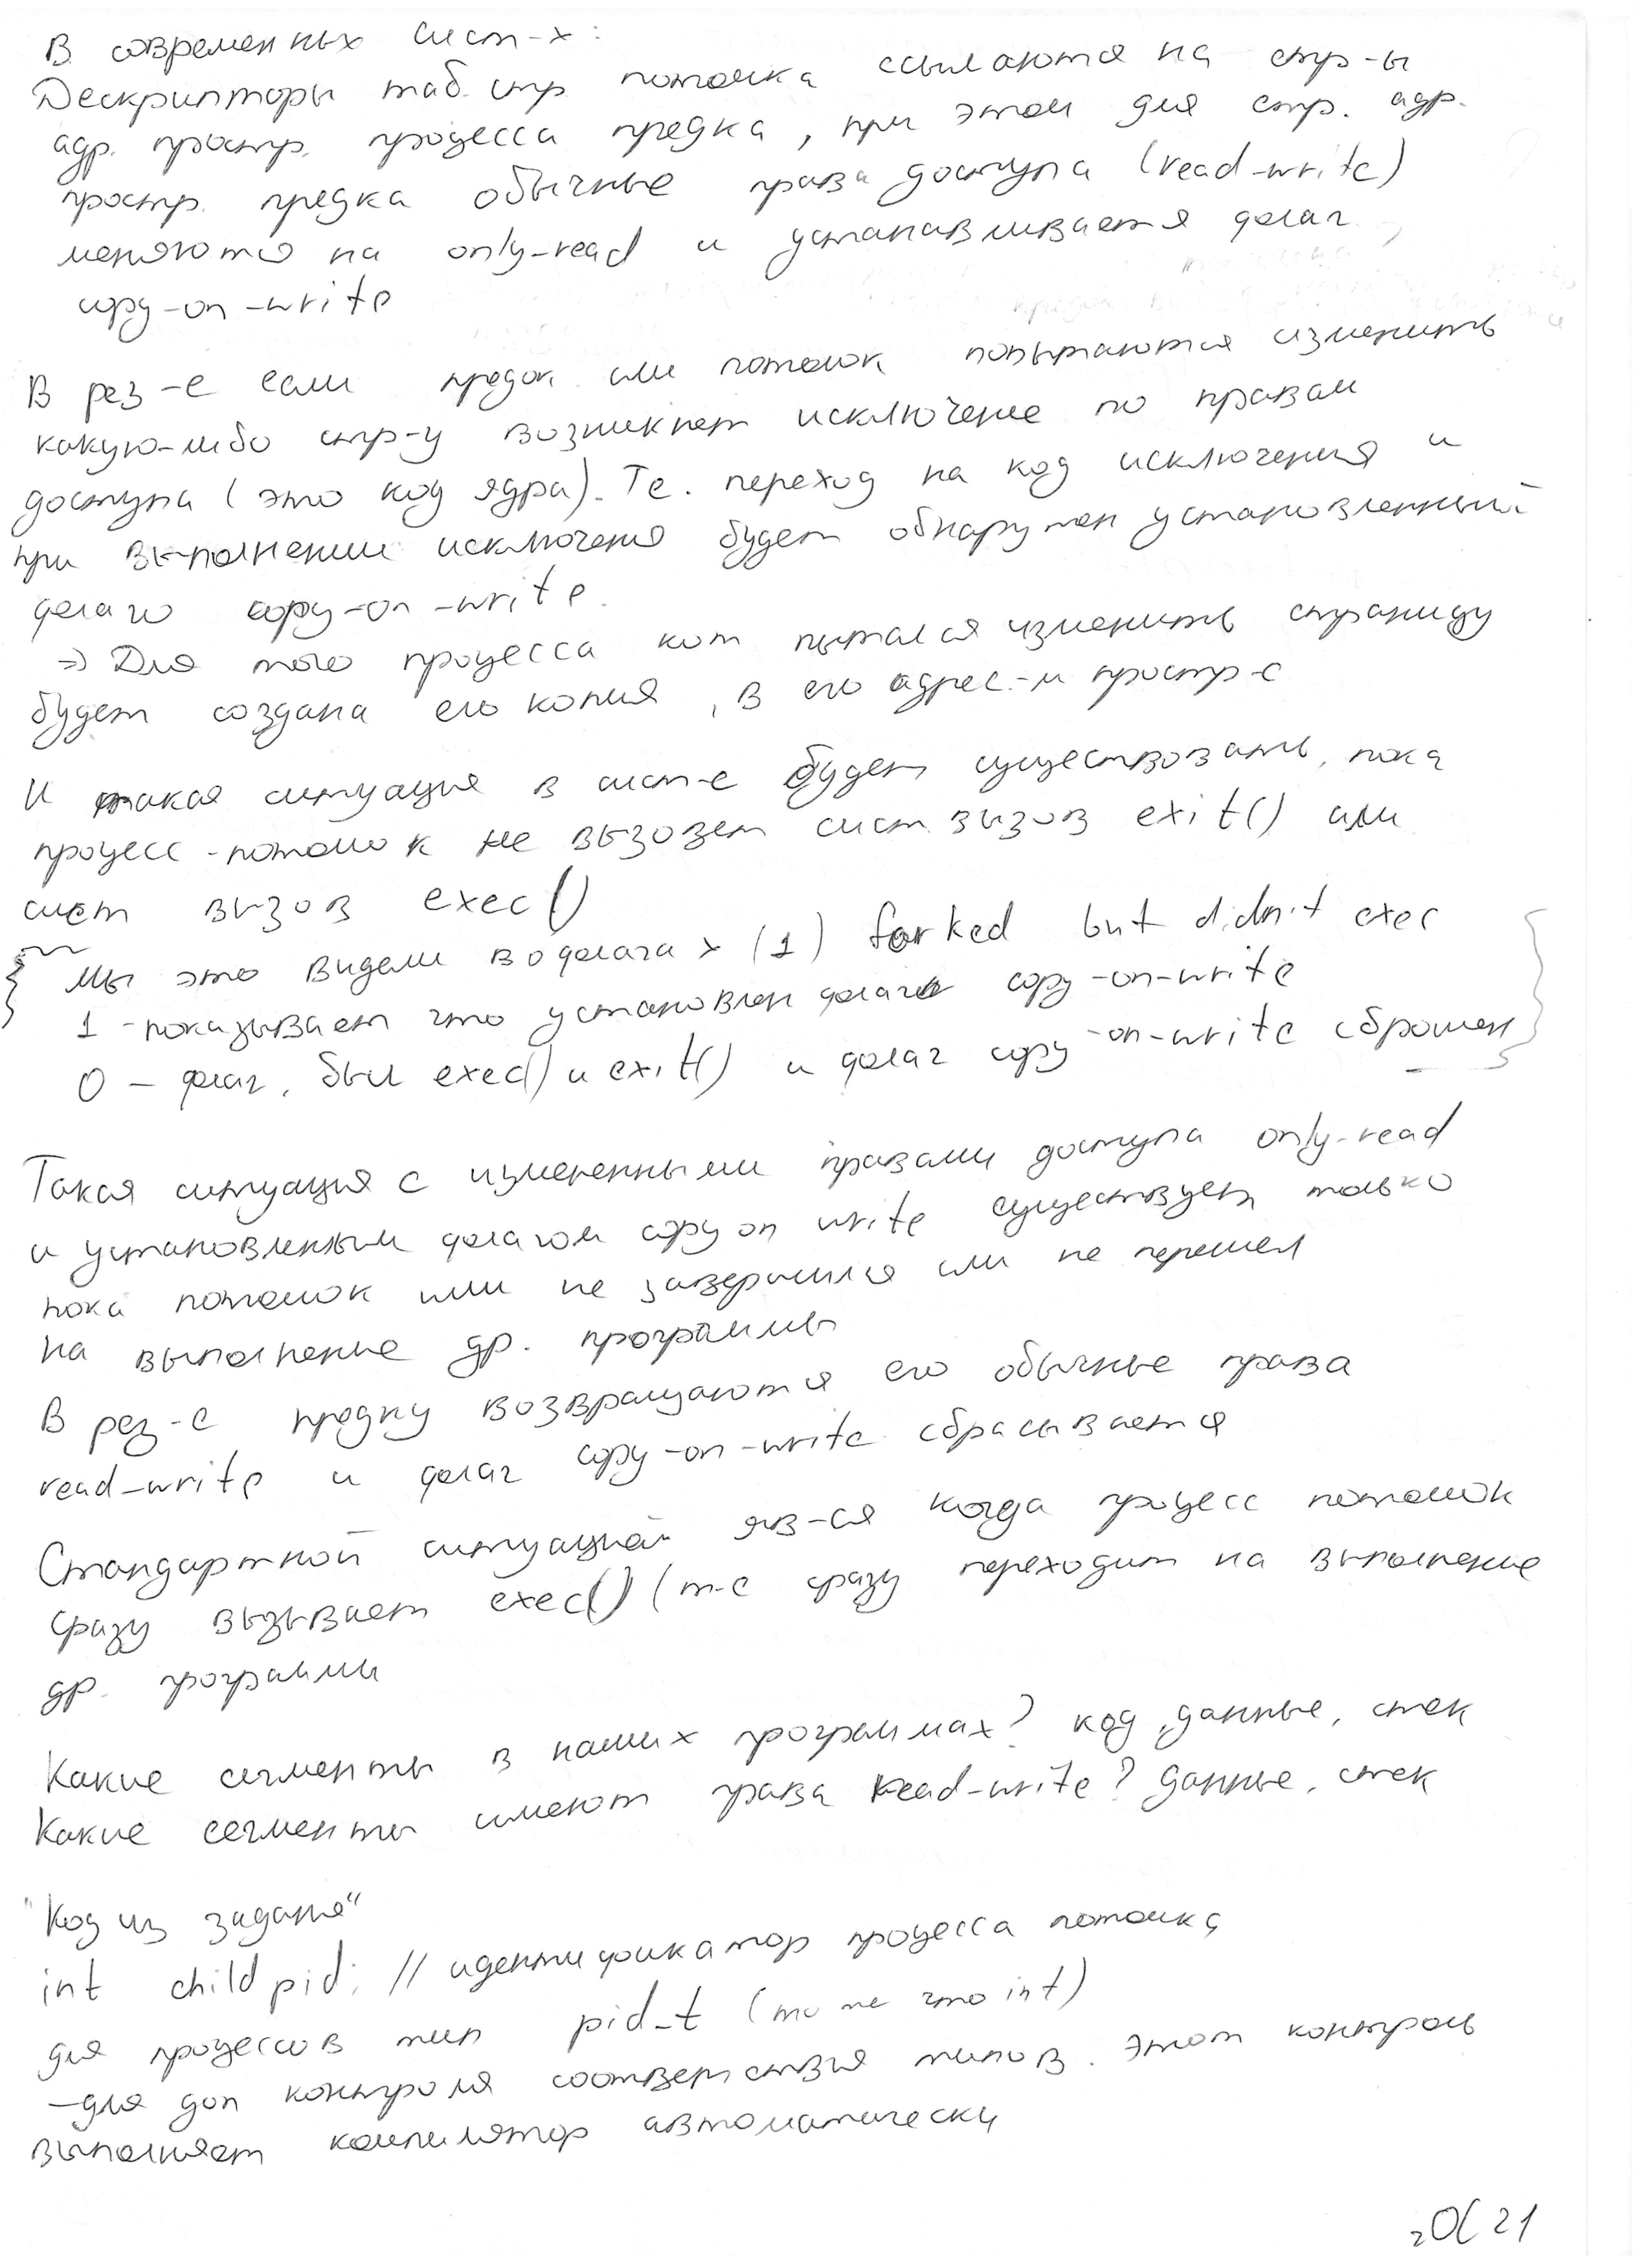 В современных сист-х:
Дескрипторы таб. стр. потомка ссылаются на стр-ы
адр. простр. процесса предка, при этом для стр. адр.
простр. предка обычные права доступа (read-write)
меняются на only-read и устанавливается флаг
copy-on-write
В рез-е если предок или потомок попытаются изменить
какую-либо стр-у возникнет исключение по правам
доступа (это код ядра). Те. переход на код исключения и
при выполнении исключения будет обнаружен установленный
флаг copy-on-write.
=> Для того процесса кот пытался изменить страницу
будет создана его копия, в его адрес-м простр-е
И такая ситуация в сист-е будет существовать, пока
процесс-потомок не вызовет сист. вызов exit() или
сист вызов exec()
Мы это видели во флагах (1) forked but didn't exec
1 - показывает что установлен флаг copy-on-write
0 - флаг, был exec() и exit() и флаг copy-on-write сброшен
Такая ситуация с измененными правами доступа only-read
и установленным флагом copy on write существует только
пока потомок или не завершился или не перешел
на выполнение др. программы
В рез-е предку возвращаются его обычные права
read-write и флаг copy-on-write сбрасывается
Стандартной ситуацией яв-ся когда процесс потомок
сразу вызывает exec() (т-е сразу переходит на выполнение
др. программы
Какие сегменты в наших программах? код, данные, стек
Какие сегменты имеют права read-write? данные, стек
"Код из задания"
int childpid; // идентификатор процесса потомка
для процессов тип pid_t (то же что int)
-для доп контроля соответствия типов. Этот контроль
выполняет компилятор автоматически
21